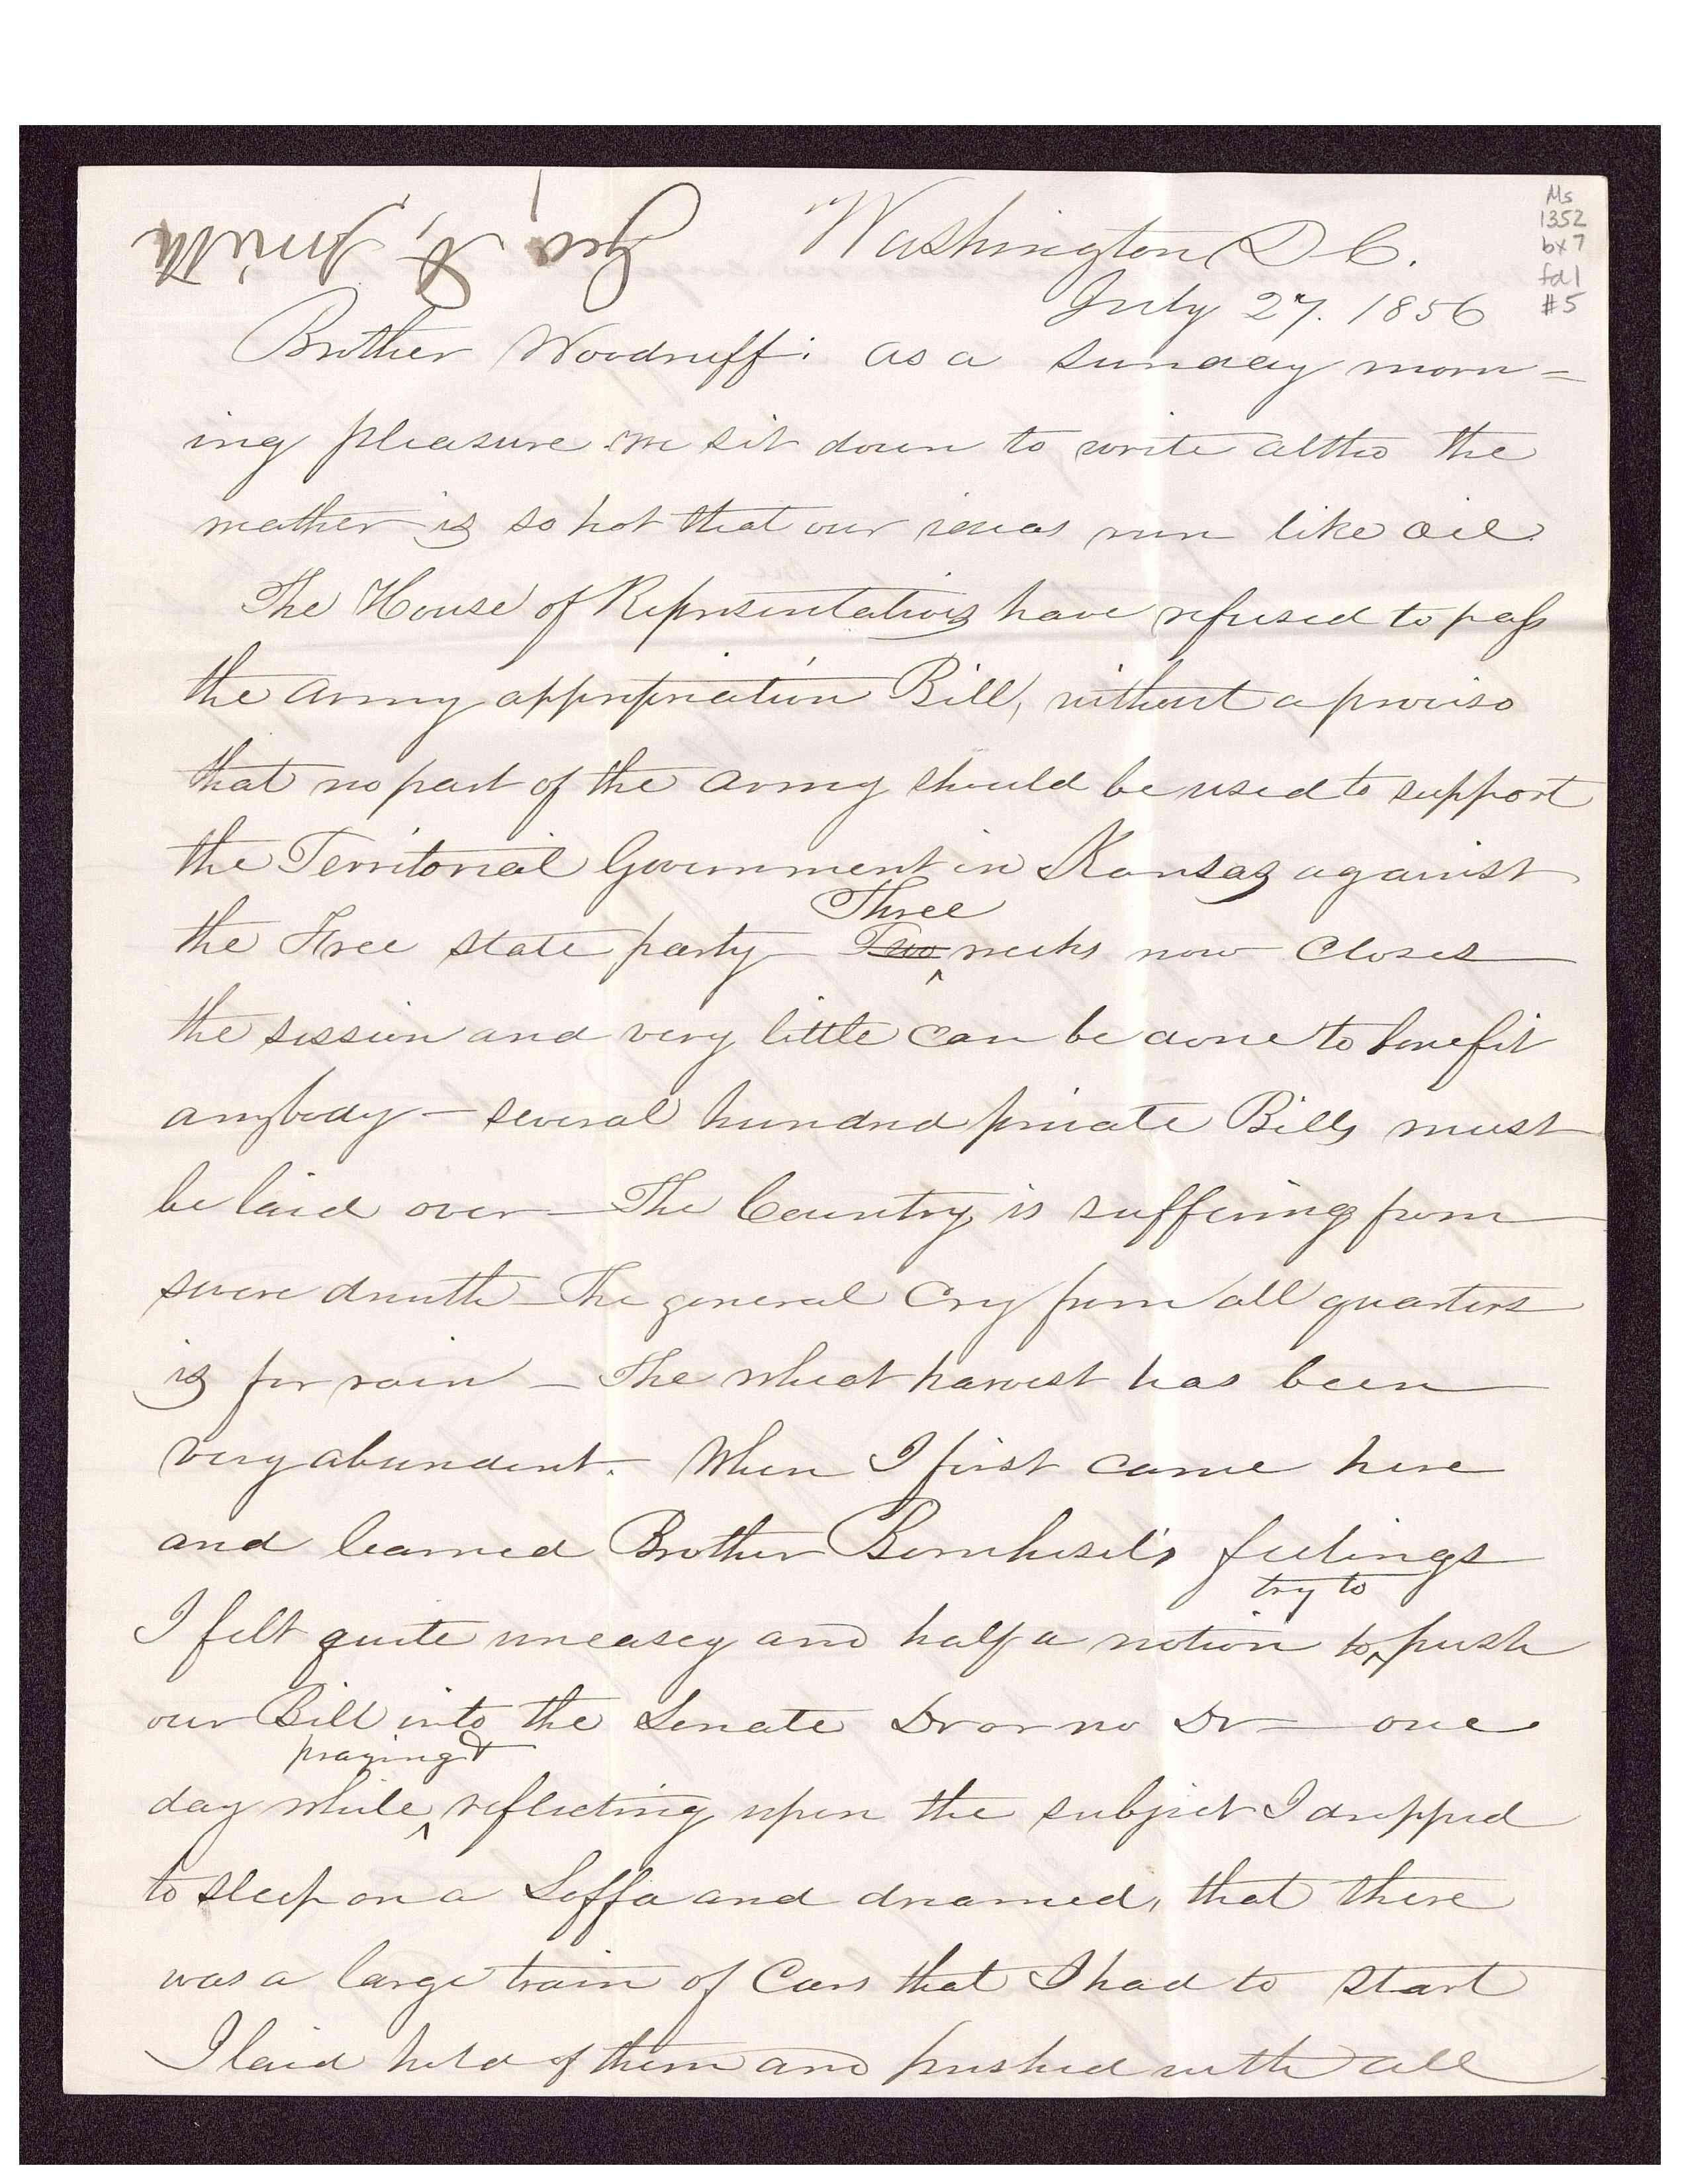 Geo. A. Smith
Ms
1352
bx 7
fd 1
#5
Washington D C.
July 27. 1856
Brother Woodruff: as a sunday morn=
ing pleasure we sit down to write altho the
weather is so hot that our ideas run like oil.
The House of Representatives have refused to pass
the army appropriation Bill, without a proviso
that no part of the army should be used to support
the Territorial Government in Kansas against
the Free state party Two Three weeks now closes
the session and very little can be done to benefit
anybody — several hundred private Bills must
be laid over — The Country is suffering from
severe drouth — The general cry from all quarters
is for rain — The wheat harvest has been
very abundent. When I first came here
and learned Brother Bernhisel's feelings
I felt quite uneasey and half a notion to try to push
our Bill into the Senate Dr or no Dr — one
day while praying & reflecting upon the subject I dropped
to sleep on a Soffa and dreamed, that there
was a large train of Cars that I had to start
I laid hold of them and pushed with all